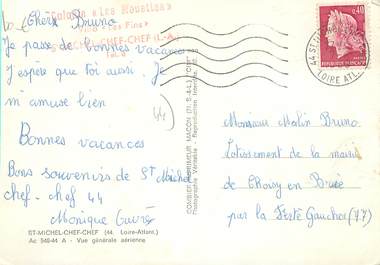 Colonie "Les Mouettes"
"Les Pins"
ST MICHEL-CHEF-CHEF (L.-A.
Chers Bruno
Je passe de bonnes vacances
J'espère que toi aussi. Je
m'amuse bien
44
Bonnes
vacances
Bons souvenirs de St Michel
chef-chef 44
Monique
ST-MICHEL-CHEF-CHEF (44. Loire-Atlant.)
Ac 548-44 A - Vue générale aérienne
COMBIER IMPRIMEUR MACON (71. S.-&-L.) "CIM"
Photographie Véritable - Reproduction Interdite
0,40
REPUBLIQUE FRANÇAISE
44 ST
LOIRE ATL.
Monsieur Malin Bruno
Lotissement de la mairie
de Choisy en Brie
par la Ferté Gaucher (77)